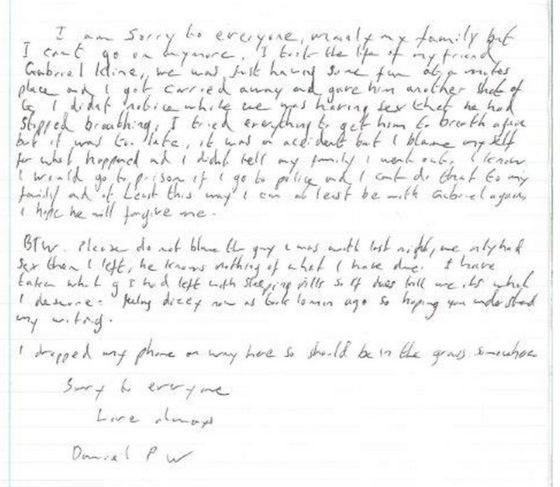 I am sorry to everyone, mainly my family but
I cant go on anymore, I took the life of my friend
Gabriel Kline, we was just having some fun at a mates
place and I got carried away and gave him another shot of
G, I didnt notice while we was having sex that he had
stopped breathing, I tried everything to get him to breath again
but it was to late, it was an accident but I blame myself
for what happened and I didnt tell my family I went out, I know
I would go to prison if I go to police and I cant do that to my
family and at least this way I can at least be with Gabriel again,
I hope he will forgive me.
BTW. Please do not blame the guy I was with last night, we only had
sex then I left, he knows nothing of what I have done. I have
taken what g I had left with sleeping pills so if it does kill me its what
I deserve. Feeling dizzy now as took 10 min ago so hoping you understand
my writing.
I dropped my phone on way here so should be in the grass somewhere
Sorry to everyone
Love always
Daniel P W